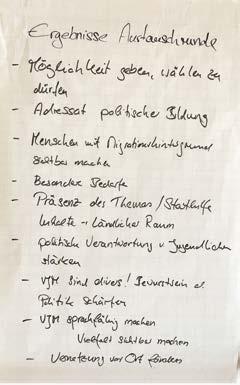 Ergebnisse Austauschrunde
- Möglichkeit geben, wählen zu
dürfen
- Adressat politischer Bildung
- Menschen mit Migrationshintergrund
sichtbar machen
- Besondere Bedarfe
- Präsenz des Themas /
Inhalte Ländlicher Raum
- politische Verantwortung v. Jugendlichen
stärken
- VJM sind divers! Bewusstsein d.
Politik schärfen
- VJM sprachfähig machen
Vielfalt sichtbar machen
- Vernetzung vor Ort fördern